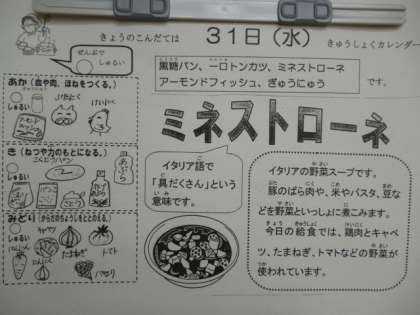 きょうのこんだては
31日(水)
きゅうしょくカレンダー
ぜんぶで
しゅるい
黒糖パン、一口トンカツ、ミネストローネ
アーモンドフィッシュ、ぎゅうにゅう
です。
あか(血や肉、ほねをつくる。)
しゅるい
ぶたにく
けいにく
アーモンド
き(ねつや力のもとになる。)
しゅるい
こくとうパン
あぶら
みどり(からだのちょうしをととのえる。)
しゅるい
キャベツ
たまねぎ
トマト
にんじん
パセリ
ミネストローネ
イタリア語で
「具だくさん」という
意味です。
イタリアの野菜スープです。
豚のばら肉や、米やパスタ、豆な
どを野菜といっしょに煮こみます。
今日の給食では、鶏肉とキャベ
ツ、たまねぎ、トマトなどの野菜が
使われています。